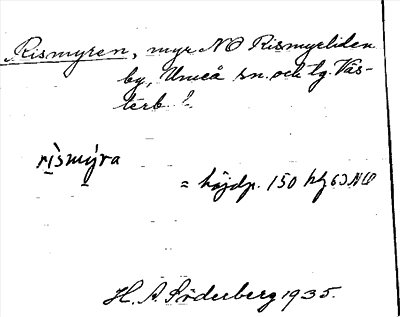 Rismyren, myr NO Rismyrliden
by, Umeå sn. och tg. Väs-
terb. l.
rìsmýra
= höjdp. 150 hg 63 NO
H. A. Söderberg 1935.